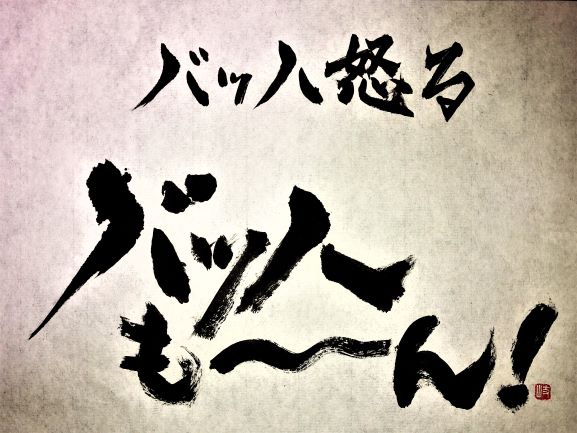 バッハ怒る
バッハ
も〜ん!